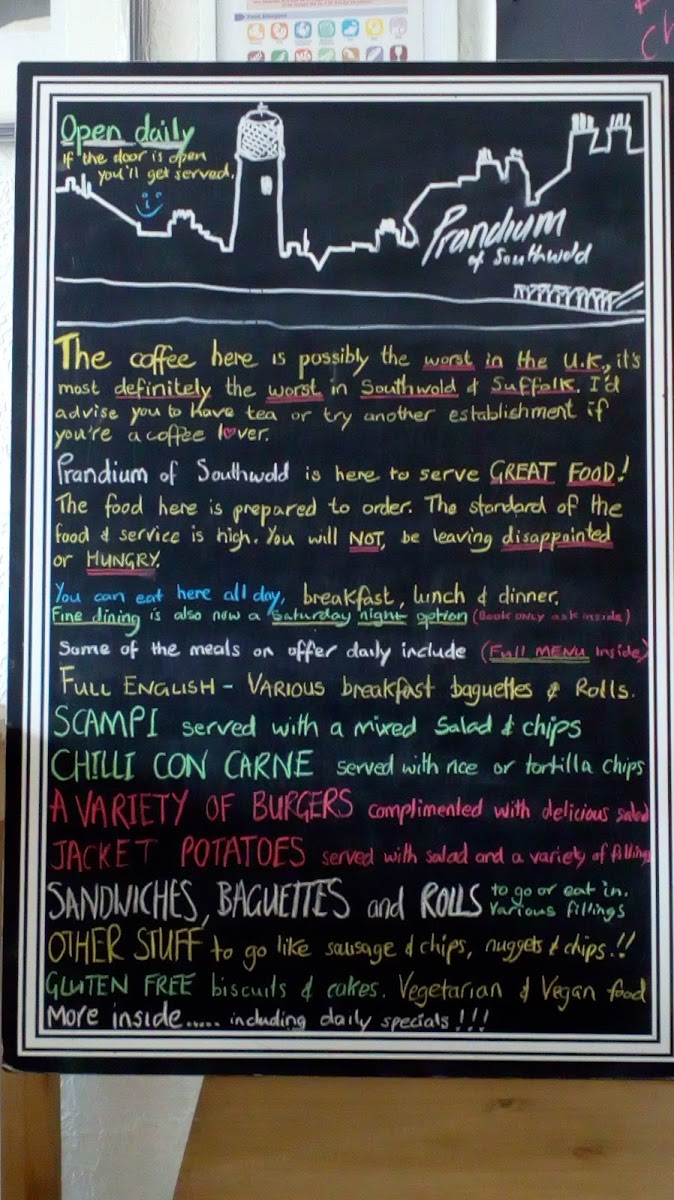 Open daily
If the door is open
you'll get served.
Prandium
of Southwold
The coffee here is possibly the worst in the U.K., it's
most definitely the worst in Southwold & Suffolk. I'd
advise you to have tea or try another establishment if
you're a coffee lover.
Prandium of Southwold is here to serve GREAT FOOD!
The food here is prepared to order. The standard of the
food & service is high. You will NOT, be leaving disappointed
or HUNGRY.
You can eat here all day, breakfast, lunch & dinner.
Fine dining is also now a Saturday night option (Book ONLY ask inside)
Some of the meals on offer daily include (Full MENU Inside)
FULL ENGLISH - VARIOUS breakfast baguettes & Rolls.
SCAMPI served with a mixed Salad & chips
CHILLI CON CARNE served with rice or tortilla chips
A VARIETY OF BURGERS complimented with delicious salad
JACKET POTATOES served with salad and a variety of fillings
SANDWICHES, BAGUETTES and ROLLS to go or eat in.
Various fillings
OTHER STUFF to go like sausage & chips, nuggets & chips.!!
GLUTEN FREE biscuits & cakes. Vegetarian & Vegan food
More inside..... including daily specials!!!